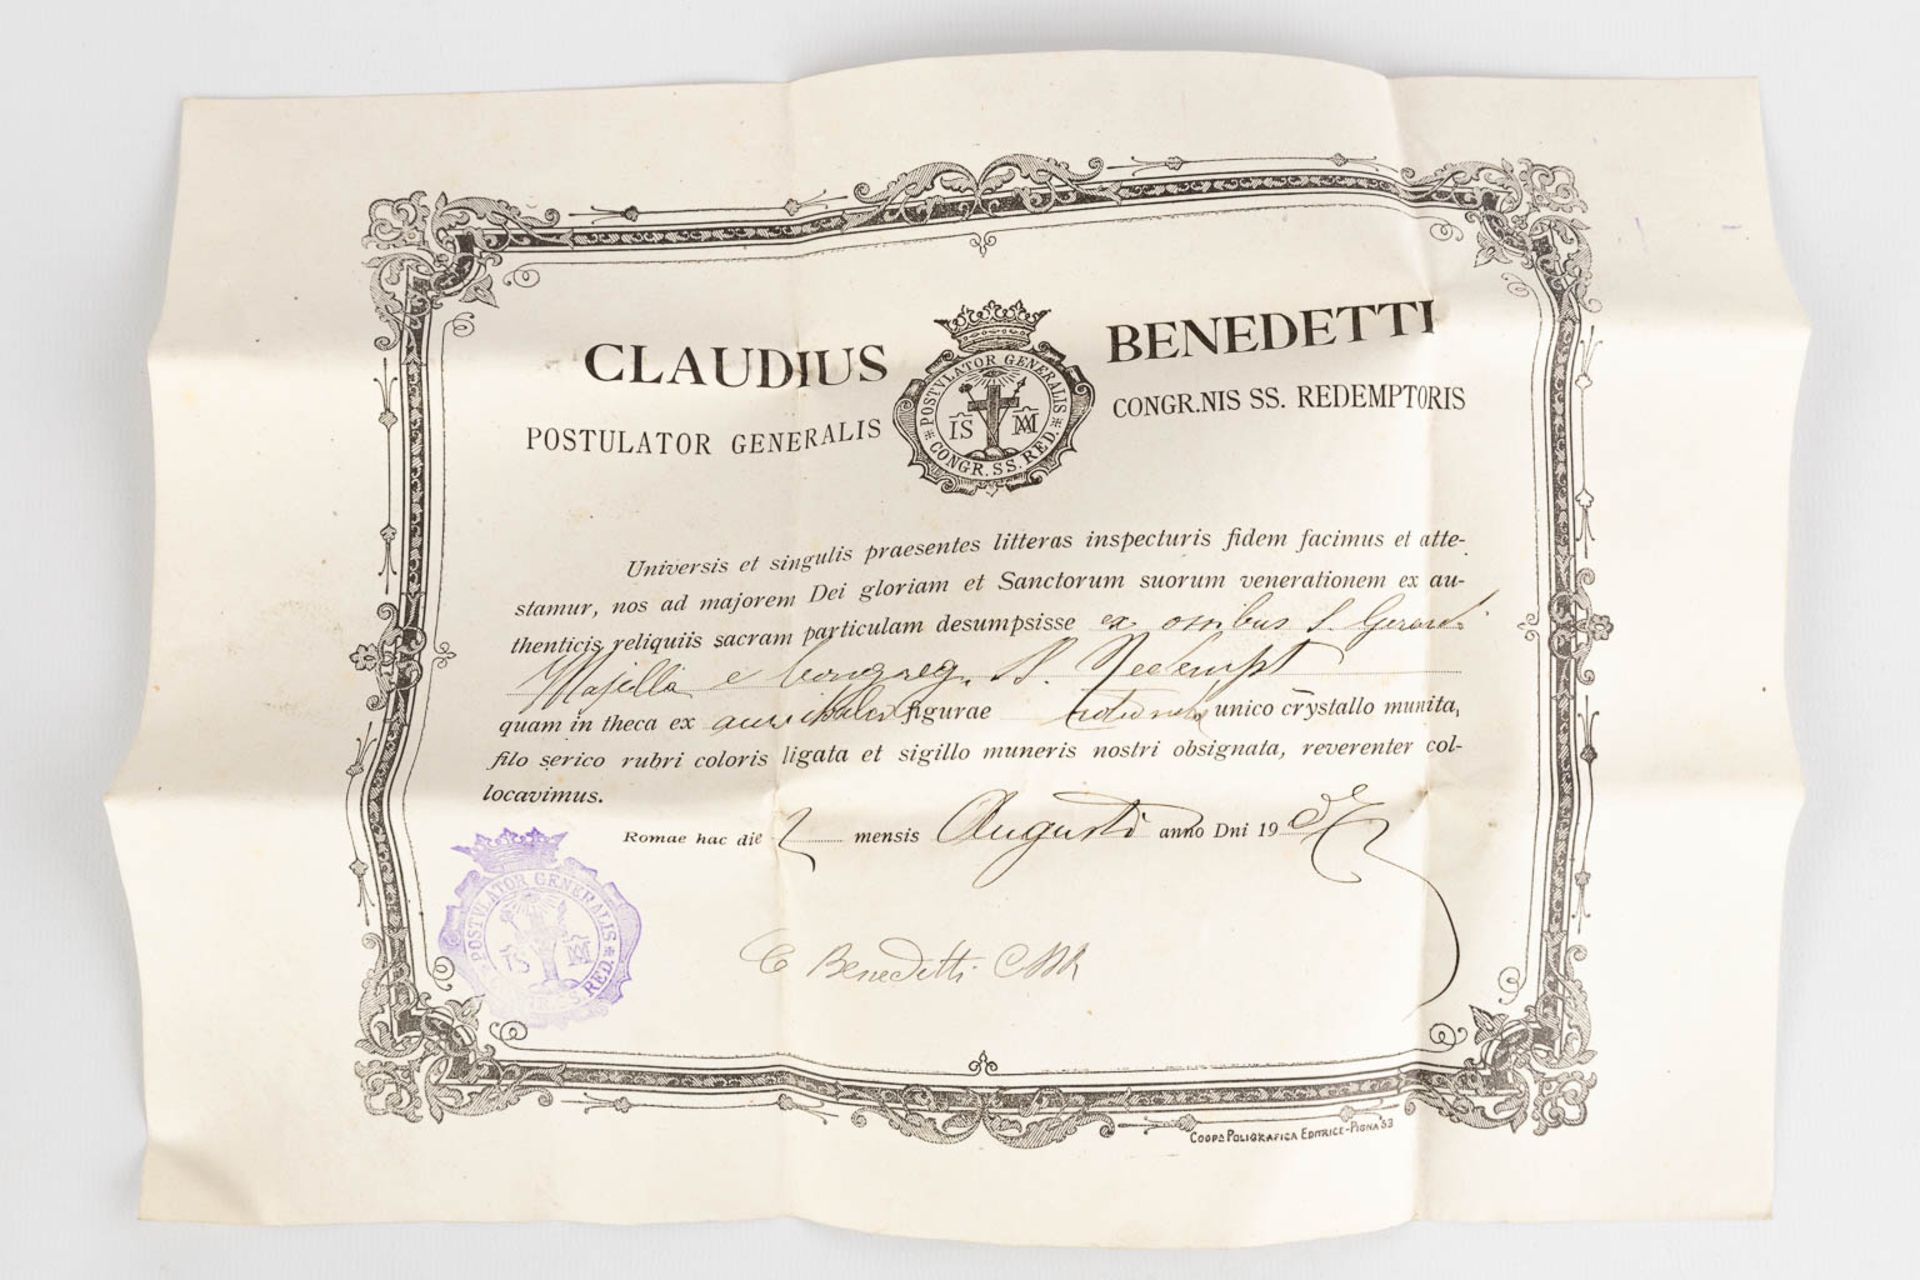 CLAUDIUS BENEDETTI
POSTULATOR GENERALIS CONGR.NIS SS. REDEMPTORIS
POSTVLATOR GENERALIS
IS AM
* CONGR. SS. RED. *
Universis et singulis praesentes litteras inspecturis fidem facimus et atte-
stamur, nos ad majorem Dei gloriam et Sanctorum suorum venerationem ex au-
thenticis reliquiis sacram particulam desumpsisse ex ossibus S. Gerardi
Majella e Congreg. SS. Redempt
quam in theca ex aurichalco figurae rotunda unico crystallo munita,
filo serico rubri coloris ligata et sigillo muneris nostri obsignata, reverenter col-
locavimus.
Romae hac die 2 mensis Augusti anno Dni 19
POSTVLATOR GENERALIS
IS AM
RED.
C Benedetti CSSR
COOPA POLIGRAFICA EDITRICE-PIGNA 53